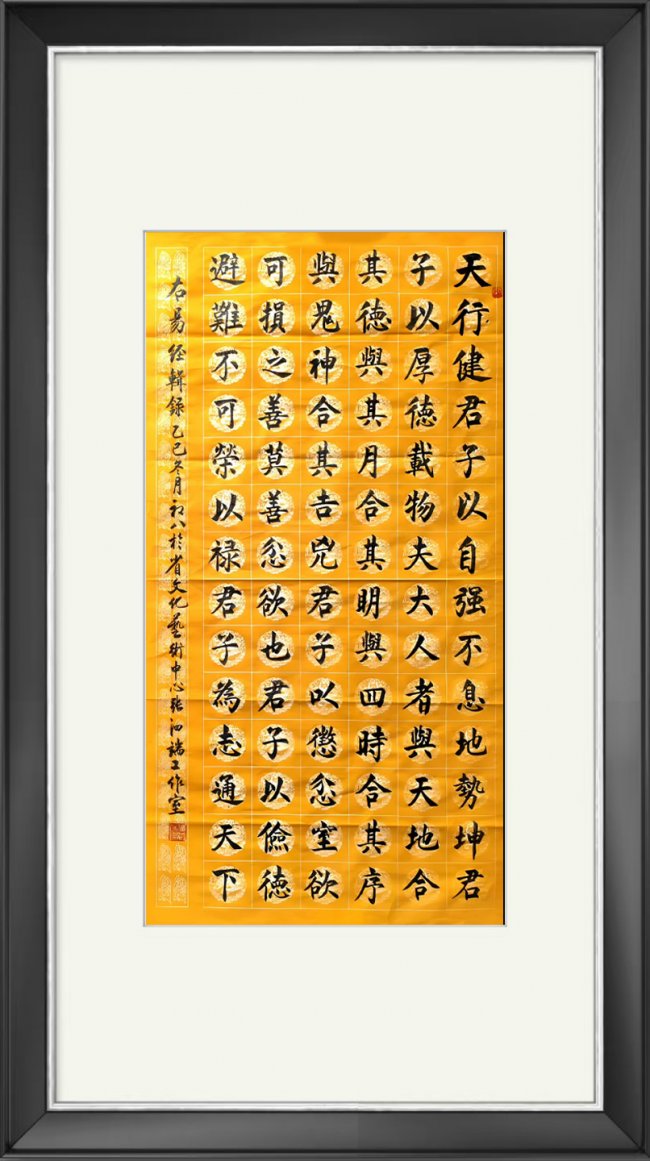 天行健君子以自强不息地勢坤君
子以厚德載物夫大人者與天地合
其德與其月合其明與四時合其序
與鬼神合其吉兇君子以懲忿室欲
可損之善莫善忿欲也君子以儉德
避難不可榮以禄君子為志通天下
右易经輯錄乙巳冬月初八於省文化藝術中心張泗端工作室